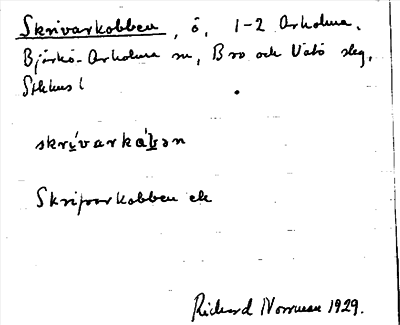 Skrivarkobben, ö, 1-2 Arholma.
Björkö-Arholma sn, Bro och Vätö slg,
Sthlms l
skrìvarkábən
Skrifvarkobben ek
Richard Norrman 1929.